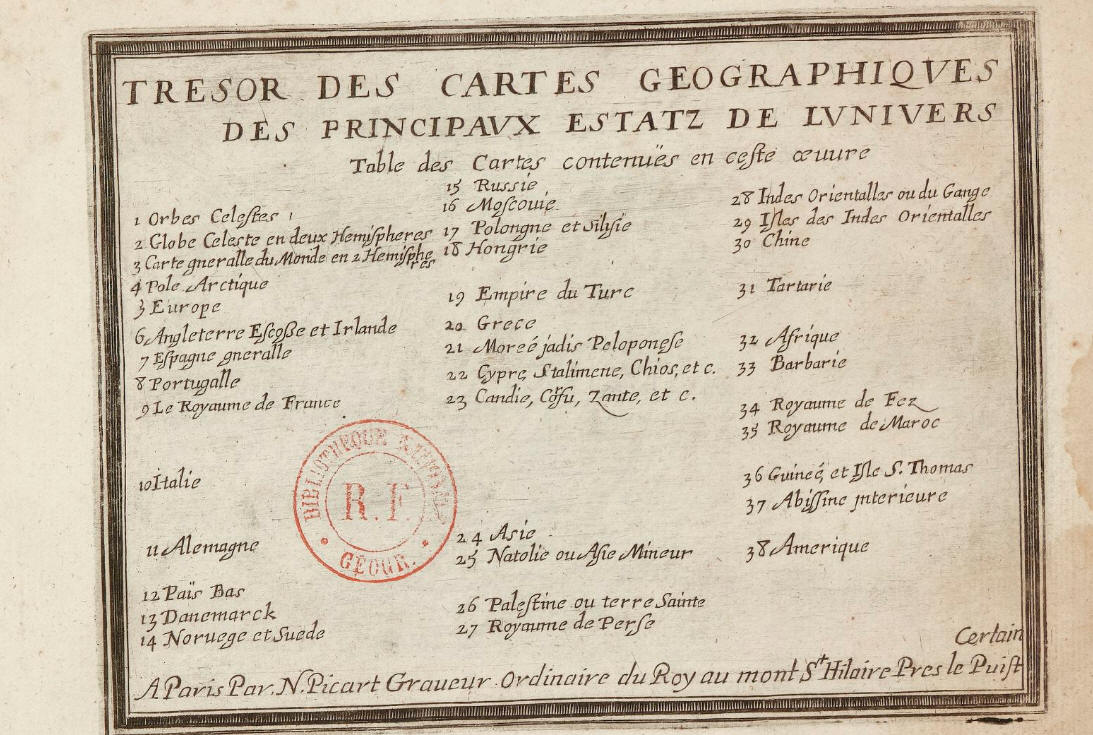 TRESOR DES CARTES GEOGRAPHIQVES
DES PRINCIPAVX ESTATZ DE LVNIVERS
Table des Cartes contenuës en ceste œuure
1 Orbes Celestes
2 Globe Celeste en deux Hemispheres
3 Carte gneralle du Monde en 2 Hemisphe
res
4 Pole Arctique
5 Europe
6 Angleterre Escoße et Irlande
7 Espagne gneralle
8 Portugalle
9 Le Royaume de France
10 Italie
11 Alemagne
12 Païs Bas
13 Danemarck
14 Noruege et Suede
15 Russie
16 Moscouie
17 Polongne et Silisie
18 Hongrie
19 Empire du Turc
20 Grece
21 Moreé jadis Peloponese
22 Cypre, Stalimene, Chios, et c.
23 Candie, Corfu, Zante, et c.
24 Asie
25 Natolie ou Asie Mineur
26 Palestine ou terre Sainte
27 Royaume de Perse
28 Indes Orientalles ou du Gange
29 Isles des Indes Orientalles
30 Chine
31 Tartarie
32 Afrique
33 Barbarie
34 Royaume de Fez
35 Royaume de Maroc
36 Guineé, et Isle S. Thomas
37 Abissine jnterieure
38 Amerique
Certain
A Paris Par. N. Picart Graueur Ordinaire du Roy au mont St Hilaire Pres le Puist
BIBLIOTHEQUE NATIONALE
R.F
GÉOGR.